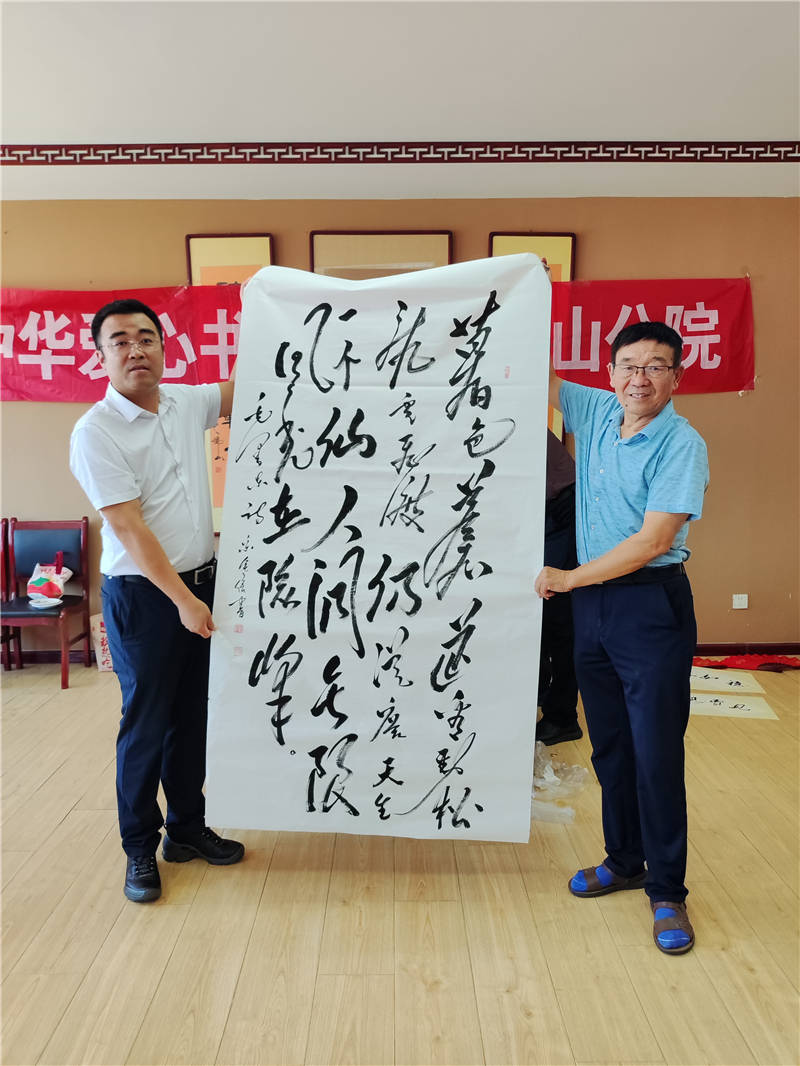 中华爱心书
山分院
暮色蒼茫看劲松
乱雲飛渡仍從容天生
一个仙人洞无限
風光在险峰。
毛泽东诗